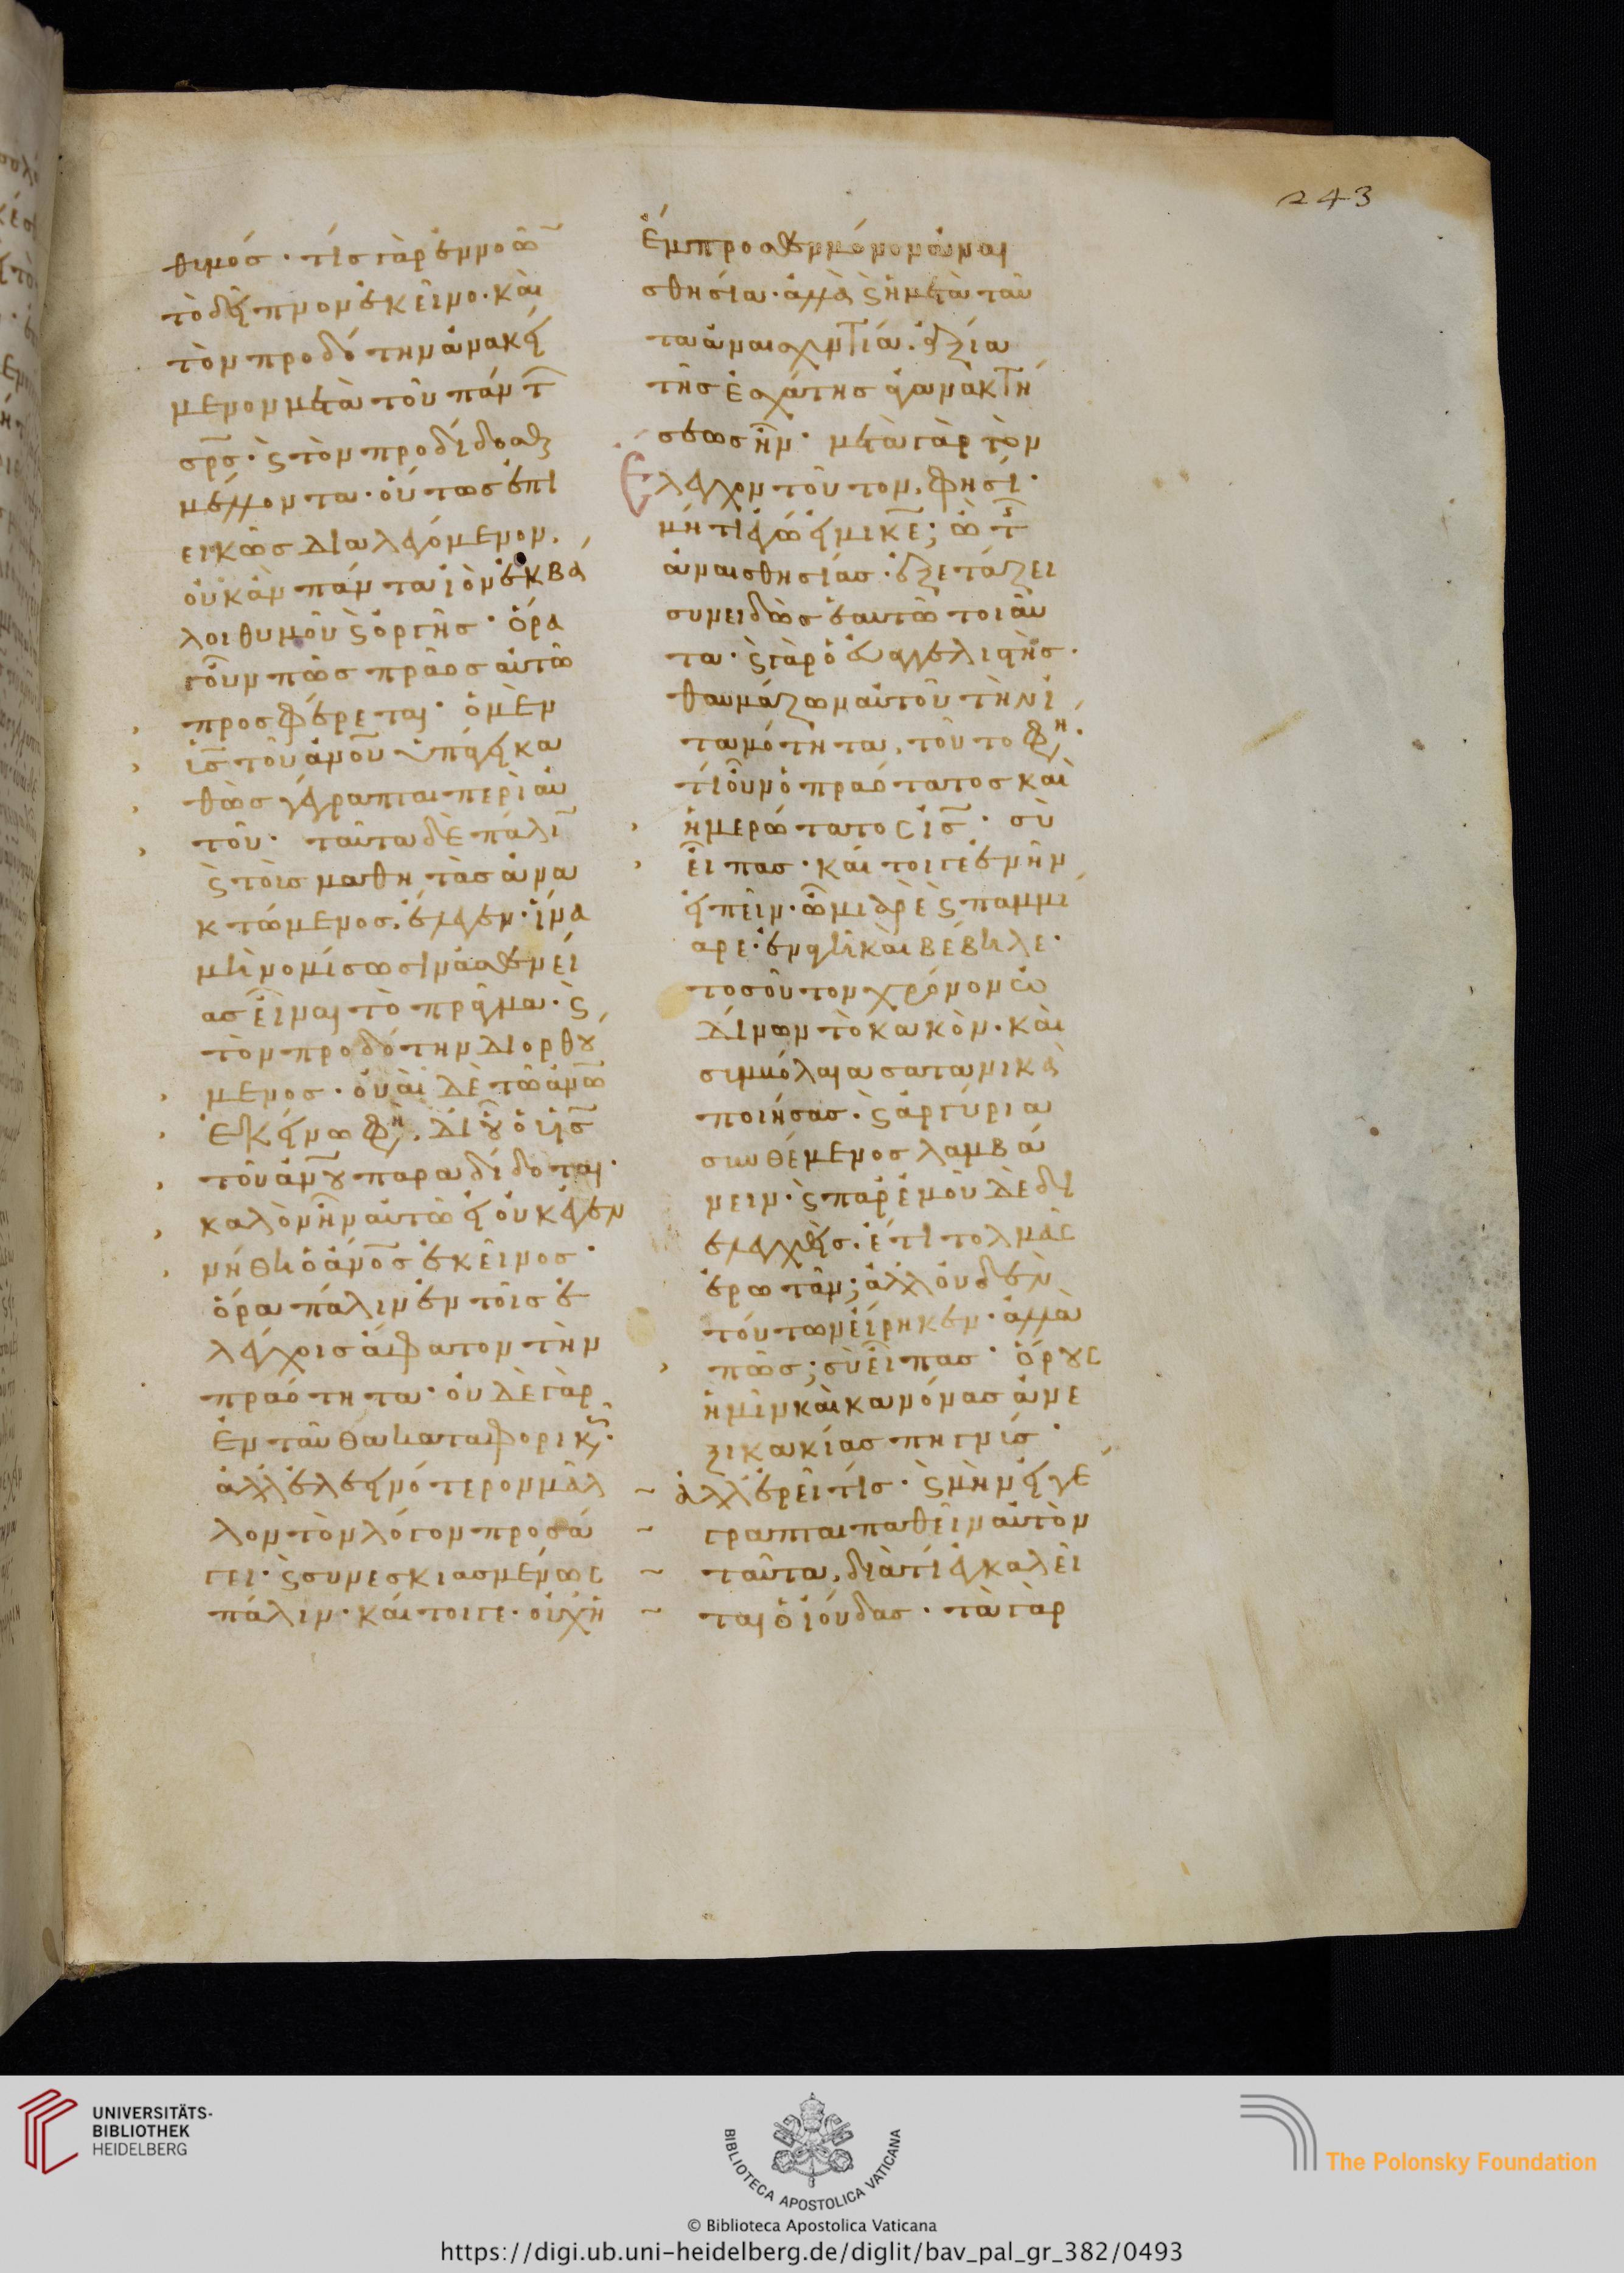 θυμός· τίς γὰρ ἐννοῶ
τὸ δεῖπνον ἐκεῖνο· καὶ
τὸν προδότην ἀνακεί
μενον μετὰ τοῦ πάντ
σρ̅ς· ϛ τὸν προδίδοσθ
μέλλοντα· οὕτως ἐπι
εικῶς διαλεγόμενον,
οὐκ ἂν πάντα ἰὸν ἐκβά
λοι θυμοῦ ϛ ὀργῆς· ὅρα
γοῦν πῶς πρᾶος αὐτῶ
προσφέρεται· ὁ μὲν
υἱς̅ τοῦ ἀνου̅ ὑπάγει κα
θὼς γέγραπται περὶ αὐ
τοῦ· ταῦτα δὲ πάλι̅
ϛ τοὺς μαθητὰς ἀνα
κτώμενος, ἔλεγεν· ἵνα
μὴ νομίσωσιν ἀσθενεί
ας εἶναι τὸ πρᾶγμα· ϛ
τὸν προδότην διορθού
μενος· οὐαὶ δὲ τῶ ἀνω̅
ἐκείνω φη, δι οὗ ὁ υἱς̅
τοῦ ἀνου̅ παραδίδοται·
καλὸν ἦν αὐτῶ εἰ οὐκ ἐγεν
νήθη ὁ ἀνος̅ ἐκεῖνος·
ὅρα πάλιν ἐν τοῖς ἐ
λέγχοις ἄφατον τὴν
πραότητα· οὐδὲ γὰρ
ἐνταῦθα καταφορικῶς·
ἀλλ ἐλεεινότερον μᾶλ
λον τὸν λόγον προσά
γει· ϛ συνεσκιασμένως
πάλιν· καίτοιγε· οὐχ ἡ
ἔμπροσθεν μόνον ἀναι
σθησία· ἀλλὰ ϛ ἡ μετὰ ταῦ
τα ἀναισχυντία· ἀξία
τῆς ἐσχάτης ἀγανακτή
σεως ἦν· μετὰ γὰρ τὸν
ἔλεγχον τοῦτον, φησί·
μή τι ἐγώ εἰμι κε̅; ὢ τς̅
ἀναισθησίας· ἐξετάζει
συνειδὼς ἑαυτῶ τοιαῦ
τα· ϛ γὰρ ὁ εὐαγγελιστὴς·
θαυμάζων αὐτοῦ τὴν ἰ
ταμότητα, τοῦτο φη·
τί οὖν ὁ πραότατος καὶ
ἡμερώτατος ις̅· σὺ
εἶπας· καίτοιγε ἐνῆν
εἰπεῖν· ὦ μιαρὲ ϛ παμμί
αρε· ἐναγῆ καὶ βέβηλε·
τοσοῦτον χρόνον ὠ
δίνων τὸ κακὸν· καὶ
συμβόλαια σατανικὰ
ποιήσας· ϛ ἀργύρια
συνθέμενος λαμβά
νειν· ϛ παρ ἐμοῦ δὲ δι
ελεγχθεὶς· ἔτι τολμᾶς
ἐρωτᾶν; ἀλλ οὐδὲν
τούτων εἴρηκεν· ἀλλὰ
πῶς; σὺ εἶπας· ὅρους
ἡμῖν καὶ κανόνας ἀνε
ξικακίας πηγνὺς·
ἀλλ ἐρεῖ τίς· ϛ μὴν εἰ γέ
γραπται παθεῖν αὐτὸν
ταῦτα, διὰ τί ἐγκαλεῖ
ται ὁ ἰούδας· τὰ γὰρ
243
UNIVERSITÄTS-
BIBLIOTHEK
HEIDELBERG
BIBLIOTECA APOSTOLICA VATICANA
© Biblioteca Apostolica Vaticana
The Polonsky Foundation
https://digi.ub.uni-heidelberg.de/diglit/bav_pal_gr_382/0493